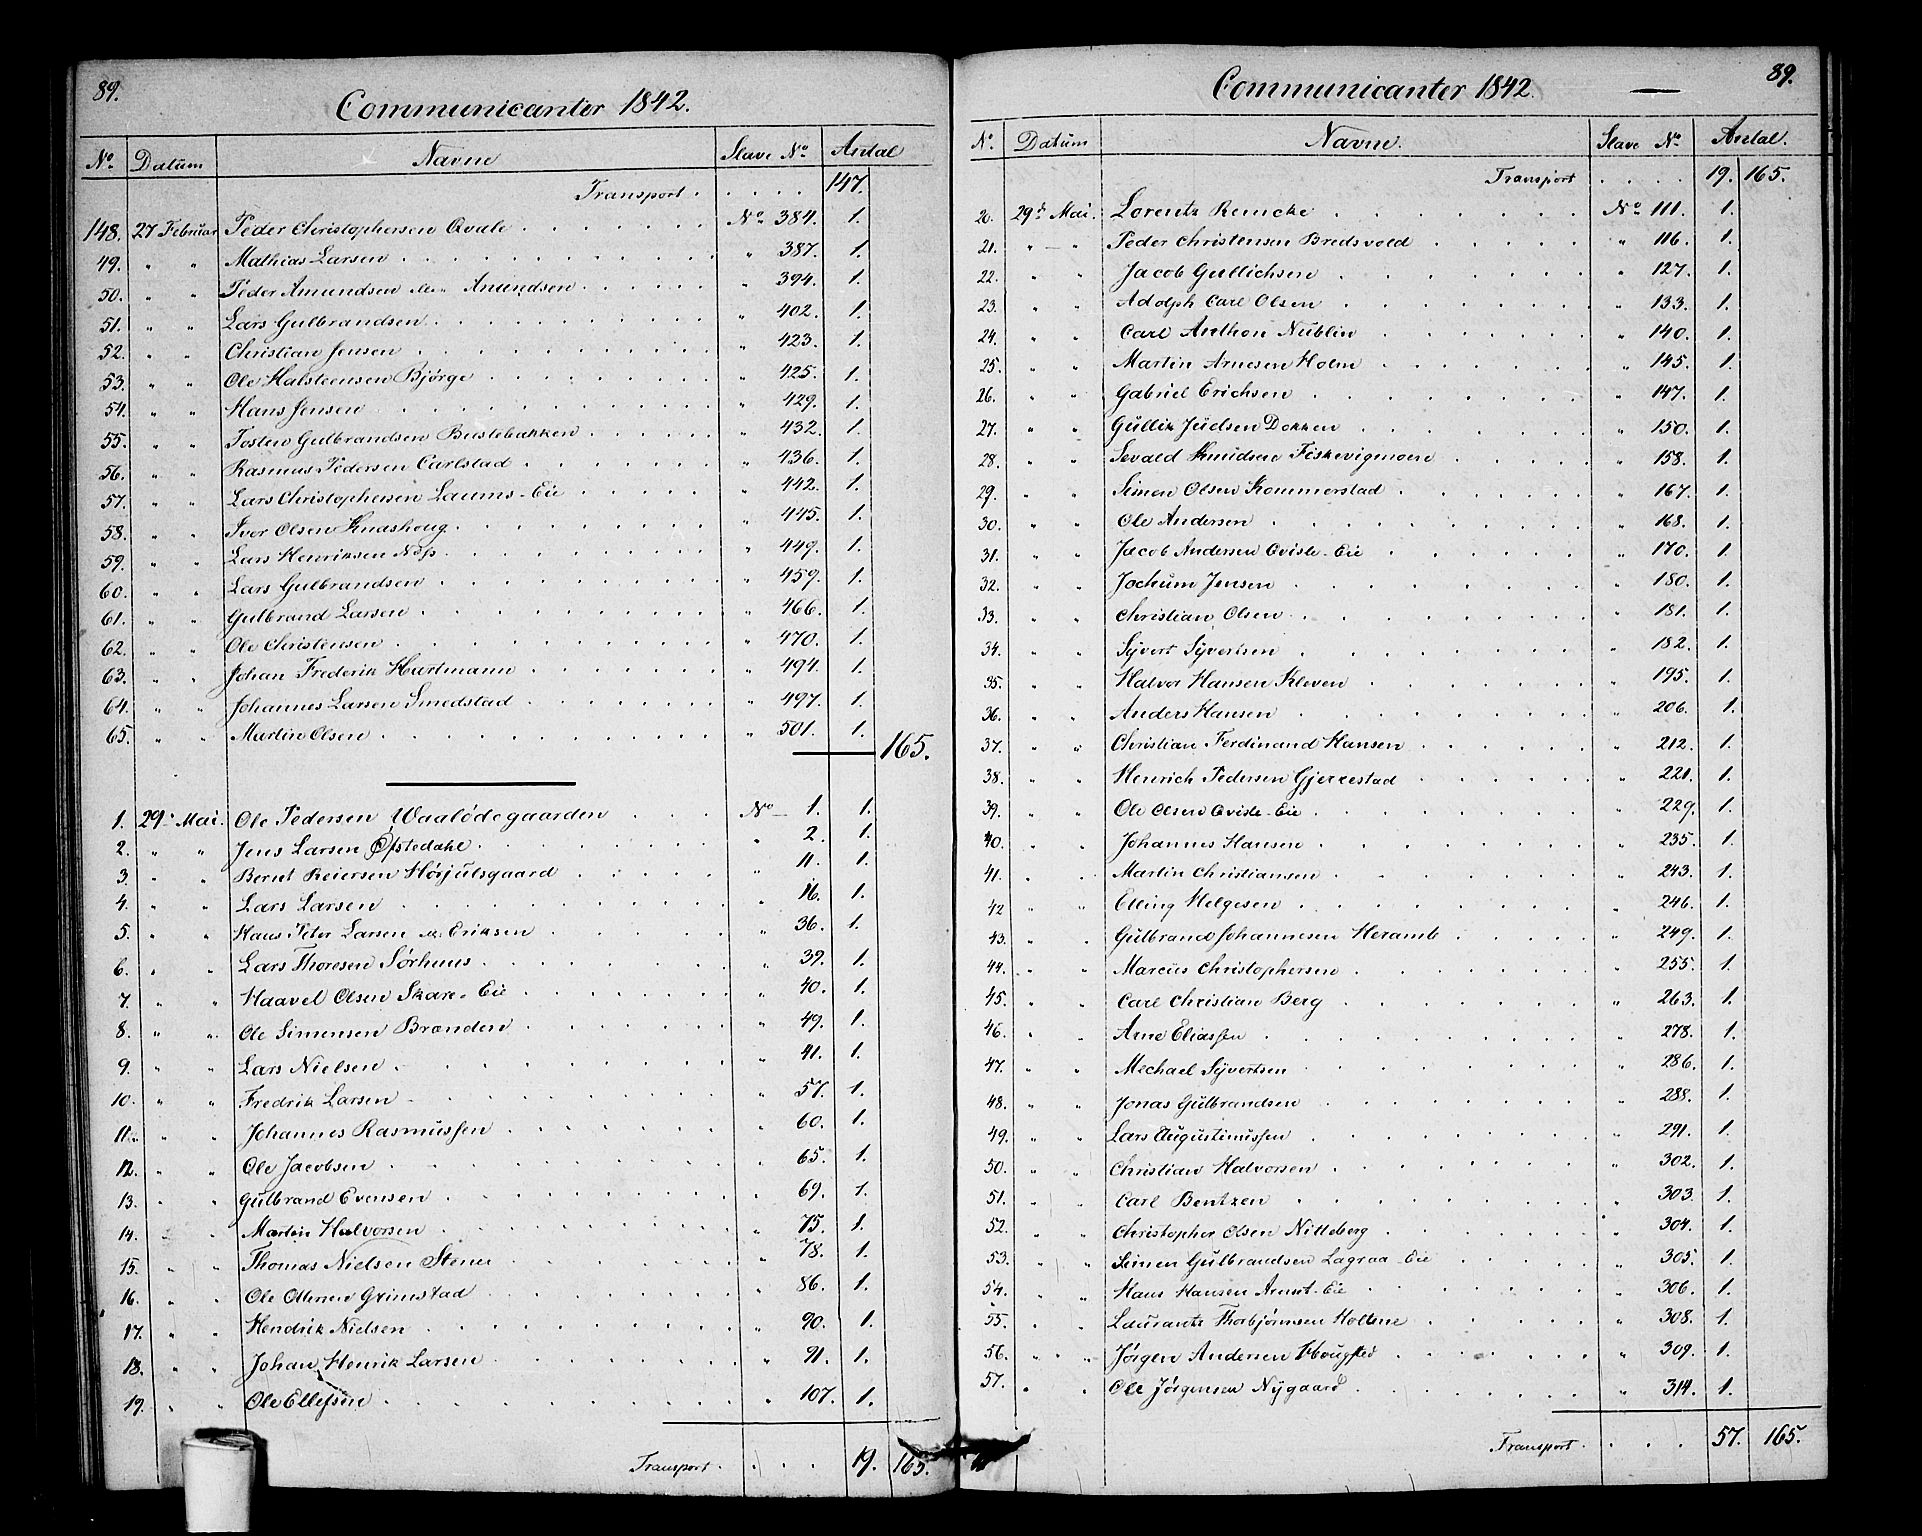 89.
Communicanter 1842.
No. Datum Navne Slave No Antal
Transport. . . . . 147.
148. 27 Februar Peder Christophersen Qvale No 384. 1.
49. " " Mathias Larsen " 387. 1.
50. " " Peder Amundsen Anundsen " 394. 1.
51. " " Lars Gulbrandsen " 402. 1.
52. " " Christian Jensen " 423. 1.
53. " " Ole Halsteensen Bjørge " 425. 1.
54. " " Hans Jensen " 429. 1.
55. " " Tosten Gulbrandsen Bustebakken " 432. 1.
56. " " Rasmus Pedersen Carlstad " 436. 1.
57. " " Lars Christophersen Laums-Eie " 442. 1.
58. " " Iver Olsen Knashoug " 445. 1.
59. " " Lars Henriksen Næss " 449. 1.
60. " " Lars Gulbrandsen " 459. 1.
61. " " Gulbrand Larsen " 466. 1.
62. " " Ole Christensen " 470. 1.
63. " " Johan Frederik Hartmann " 494. 1.
64. " " Johannes Larsen Smedstad " 497. 1.
65. " " Martin Olsen " 501. 1.
165.
1. 29. Mai. Ole Pedersen Waalødegaarden No 1. 1.
2. " " Jens Larsen Øfstedahl " 2. 1.
3. " " Bernt Reiersen Hørjulsgaard " 11. 1.
4. " " Lars Larsen " 16. 1.
5. " " Hans Peter Larsen Eriksen " 36. 1.
6. " " Lars Thoresen Sørhuus " 39. 1.
7. " " Haavel Olsen Skare-Eie " 40. 1.
8. " " Ole Simensen Branden " 49. 1.
9. " " Lars Nielsen " 41. 1.
10. " " Fredrik Larsen " 57. 1.
11. " " Johannes Rasmussen " 60. 1.
12. " " Ole Jacobsen " 65. 1.
13. " " Gulbrand Evensen " 69. 1.
14. " " Martin Halvorsen " 75. 1.
15. " " Thomas Nielsen Stener " 78. 1.
16. " " Ole Ottersen Grimstad " 86. 1.
17. " " Hendrik Nielsen " 90. 1.
18. " " Johan Henrik Larsen " 91. 1.
19. " " Ole Ellefsen " 107. 1.
Transport. . . . . 19. 165.
89.
Communicanter 1842.
No. Datum Navne. Slave No Antal.
Transport . . . . 19. 165.
20. 29d Mai. Lorentz Remcke No 111. 1.
21. " " Peder Christensen Bredsvold " 116. 1.
22. " " Jacob Gullichsen " 127. 1.
23. " " Adolph Carl Olsen " 133. 1.
24. " " Carl Anthon Nublin " 140. 1.
25. " " Martin Arnesen Holm " 145. 1.
26. " " Gabriel Erichsen " 147. 1.
27. " " Gullik Juelsen Dokken " 150. 1.
28. " " Sevald Knudsen Fiskevigmoen " 158. 1.
29. " " Simen Olsen Kommerstad " 167. 1.
30. " " Ole Andersen " 168. 1.
31. " " Jacob Andersen Qviste-Eie " 170. 1.
32. " " Jochum Jensen " 180. 1.
33. " " Christian Olsen " 181. 1.
34. " " Syvert Syvertsen " 182. 1.
35. " " Halvor Hansen Kleven " 195. 1.
36. " " Anders Hansen " 206. 1.
37. " " Christian Ferdinand Hansen " 212. 1.
38. " " Henrich Pedersen Gjerrestad " 221. 1.
39. " " Ole Olsen Qviste-Eie " 229. 1.
40. " " Johannes Hansen " 235. 1.
41. " " Martin Christiansen " 243. 1.
42 " " Elling Helgesen " 246. 1.
43. " " Gulbrand Johannesen Heramb " 249. 1.
44. " " Marcus Christophersen " 255. 1.
45. " " Carl Christian Berg " 263. 1.
46. " " Arne Eliassen " 278. 1.
47. " " Mechael Syvertsen " 286. 1.
48. " " Jonas Gulbrandsen " 288. 1.
49. " " Lars Augustinussen " 291. 1.
50. " " Christian Halvorsen " 302. 1.
51. " " Carl Bentzen " 303. 1.
52. " " Christopher Olsen Nitteberg " 304. 1.
53. " " Simen Gulbrandsen Lagraa-Eie " 305. 1.
54. " " Hans Hansen Arnut-Eie " 306. 1.
55. " " Laurants Thorbjørnsen Holtene " 308. 1.
56. " " Jørgen Andersen Hougsted " 309. 1.
57. " " Ole Jørgensen Nygaard " 314. 1.
Transport. . . . 57. 165.